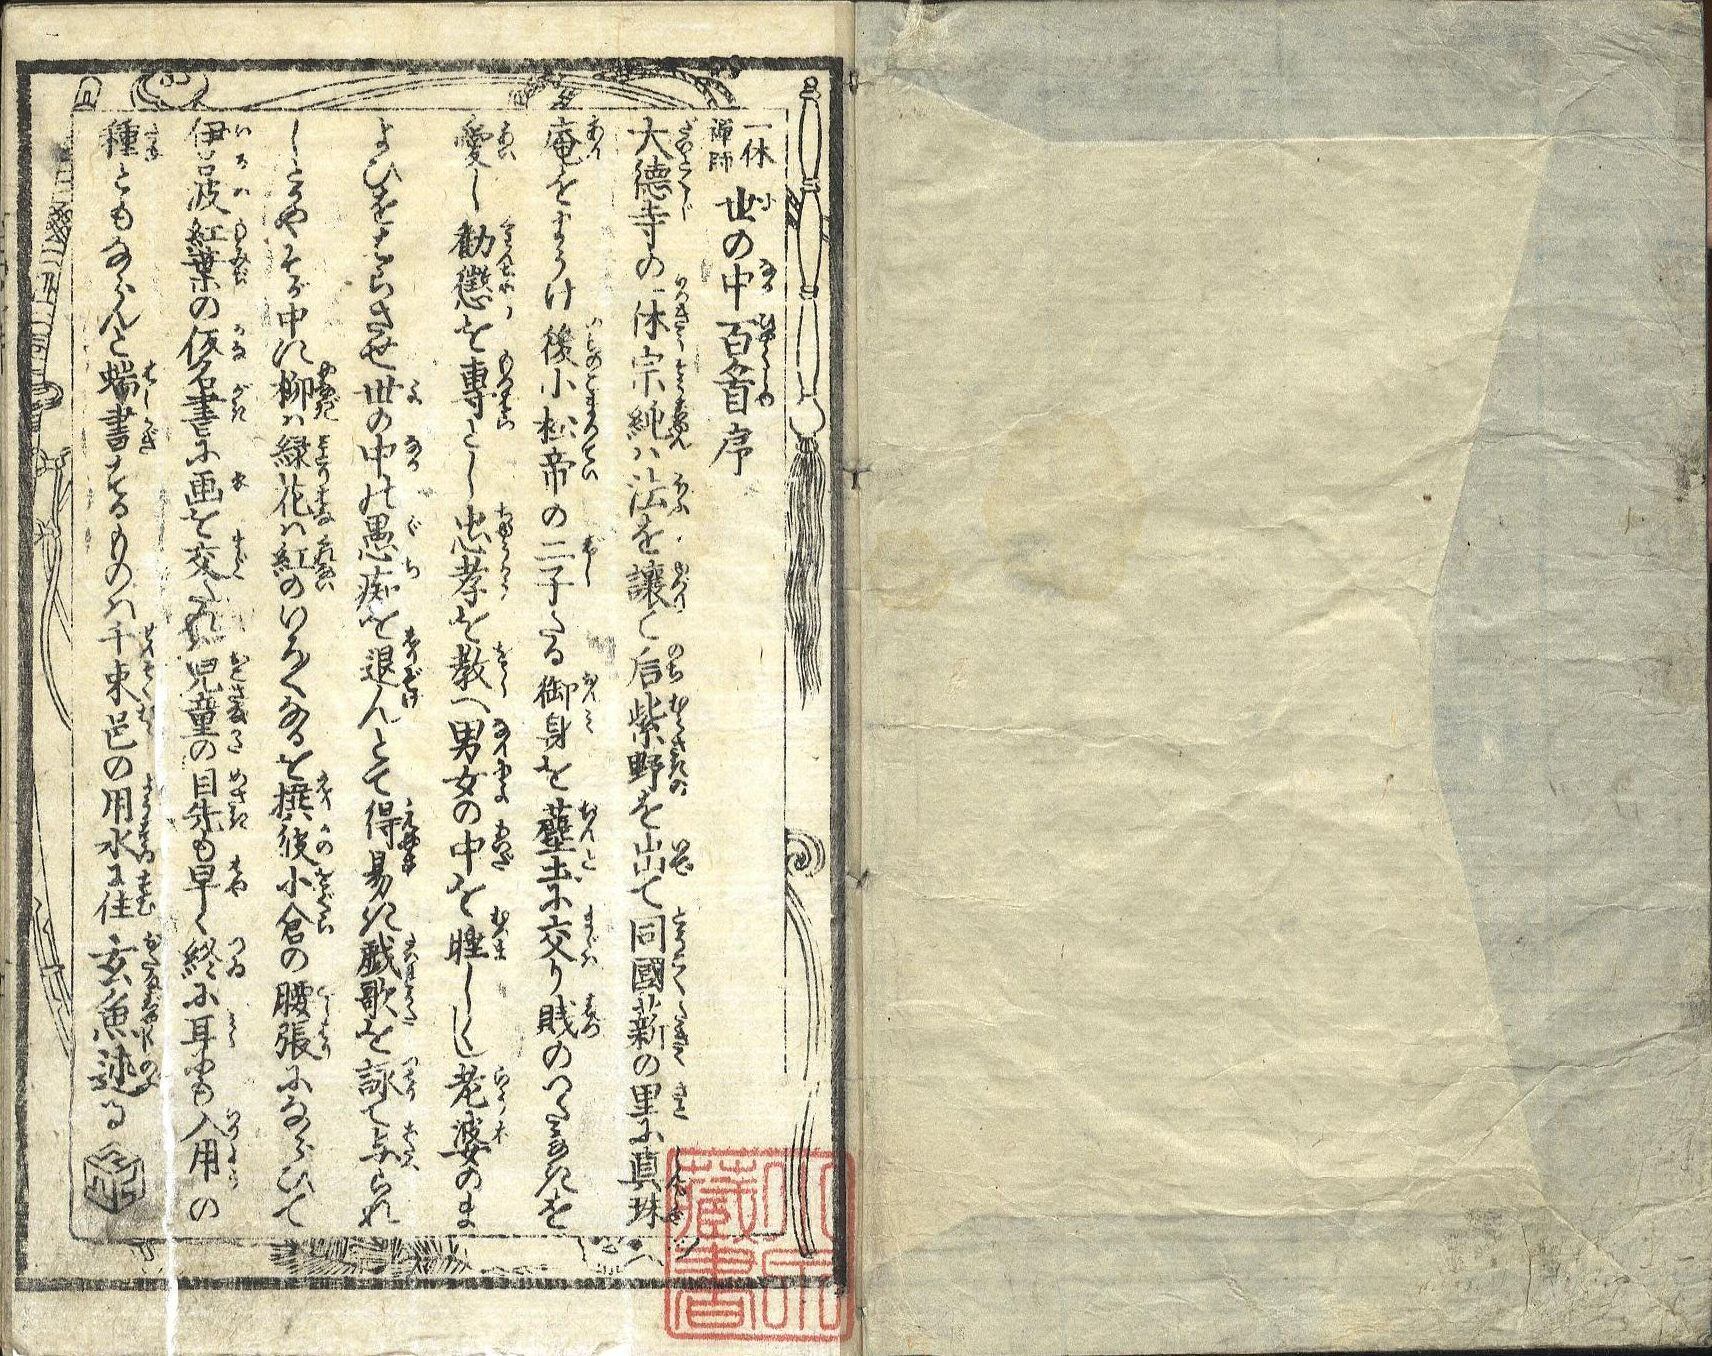 一休禅師 世の中百首序
大徳寺の一休宗純ハ法を譲て后紫野を出て同國薪の里に真珠
庵をまうけ後小松帝の二子たる御身を塵土に交り賎のつたなきを
愛し勧懲を専とし忠孝を教へ男女の中を睦しく老婆のま
よひをはらさせ世の中の愚痴を退んとて得易き戯歌を詠て与られ
しとぞやそが中に柳ハ緑花ハ紅のいろ〳〵なるを撰後小倉の腰張にならひて
伊呂波紅葉の仮名書に画を交たれバ児童の目先も早く終に耳にも入用の
種ともならんと端書するものハ千束邑の用水に住 玄魚述る